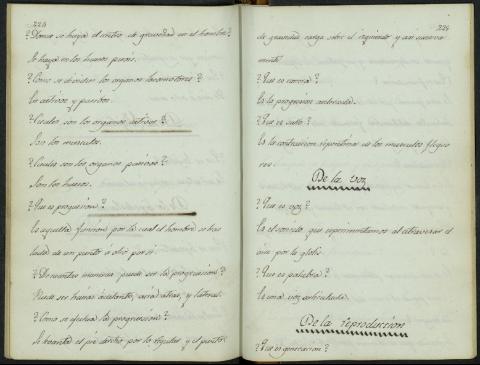 223
¿Donde se halla el centro de gravedad en el hombre?
Se haya en los huesos
¿Como se dividen los organos locomotores?
En activos y pasivos.
¿Cuales son los organos activos?
Son los musculos.
¿Cuales son los organos pasivos?
Son los huesos.
¿Que es progresion?
Es aquella funcion por la cual el hombre se tras
lada de un punto á otro por si.
¿De cuantas maneras puede ser la progresion?
Puede ser hacia adelante, acia atras, y lateral.
¿Como se efectua la progresion?
Se levanta el pié derecho por la y el punto
224
de gravedad carga sobre el izquierdo y asi suceciva
mente
¿Que es carrera?
Es la progresion acelerada.
¿Que es salto?
Es la contraccion repentina de los musculos flexo
res.
De la voz
¿Que es voz?
Es el sonido que esperimentamos al atraversar el
aire por la glotis.
¿Que es palabra?
Es una voz articulada.
De la reproduccion
¿Que es generacion?